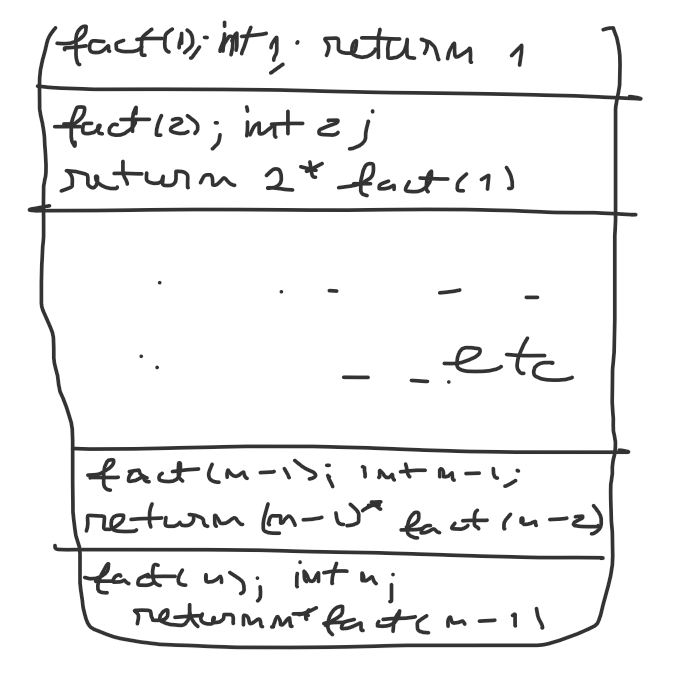 fact(1); int 1; return 1
fact(2); int 2;
return 2* fact(1)
etc
fact(n-1); int n-1;
return (n-1)* fact(n-2)
fact(n); int n;
return n* fact(n-1)